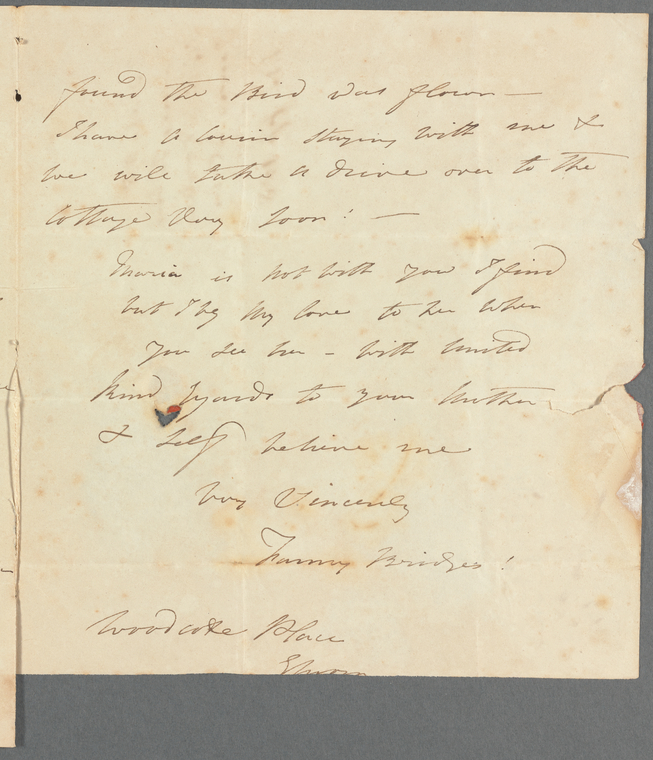 found the Bird was flown —
I have a Cousin staying with me &
we will take a drive over to the
Cottage very soon! —
Maria is not with you I find
but I beg my love to her when
you see her – with united
kind regards to your Mother
& self believe me
very Sincerely
Fanny Bridges!
Woodcote Place
Epsom